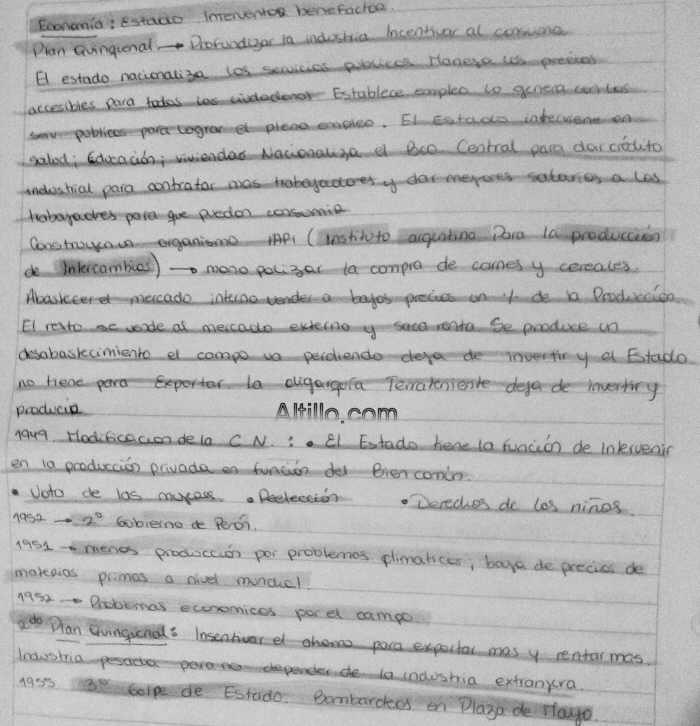 Economía: Estado Interventor benefactor.
Plan Quinquenal → Profundizar la industria Incentivar al consumo
El estado nacionaliza los servicios publicos Maneja los precios
accesibles para todos los ciudadanos Establece empleo lo genera con los
serv publicos para lograr el pleno empleo. El Estado interviene en
salud; Educación; viviendas Nacionaliza el Bco Central para dar crédito
industrial para contratar mas trabajadores y dar mejores salarios a los
trabajadores para que puedan consumir
Construye un organismo IAPI (instituto argentino Para la producción
de Intercambios) → monopolizar la compra de carnes y cereales.
Abastecer el mercado interno vender a bajos precios un % de la Producción
El resto se vende al mercado externo y saca renta Se produce un
desabastecimiento el campo va perdiendo deja de invertir y el Estado
no tiene para Exportar. La oligarquía Terrateniente deja de invertir y
producir
Altillo.com
1949 Modificacion de la C N. : • El Estado tiene la función de Intervenir
en la producción privada en función del Bien común.
• Voto de las mujeres • Reelección • Derechos de los niños.
1952 → 2° Gobierno de Perón.
1951 → menos producción por problemas climáticos, baja de precios de
materias primas a nivel mundial.
1952 → Problemas economicos por el campo
2do Plan Quinquenal: Insentivar el ahorro para exportar mas y rentar mas.
Industria pesada para no depender de la industria extranjera.
1955 3° Golpe de Estado. Bombardeos en Plaza de Mayo